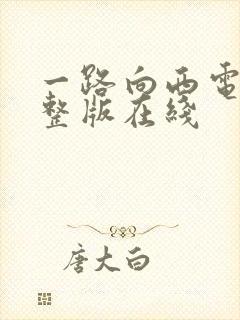 一路向西电
整版在线
唐大白